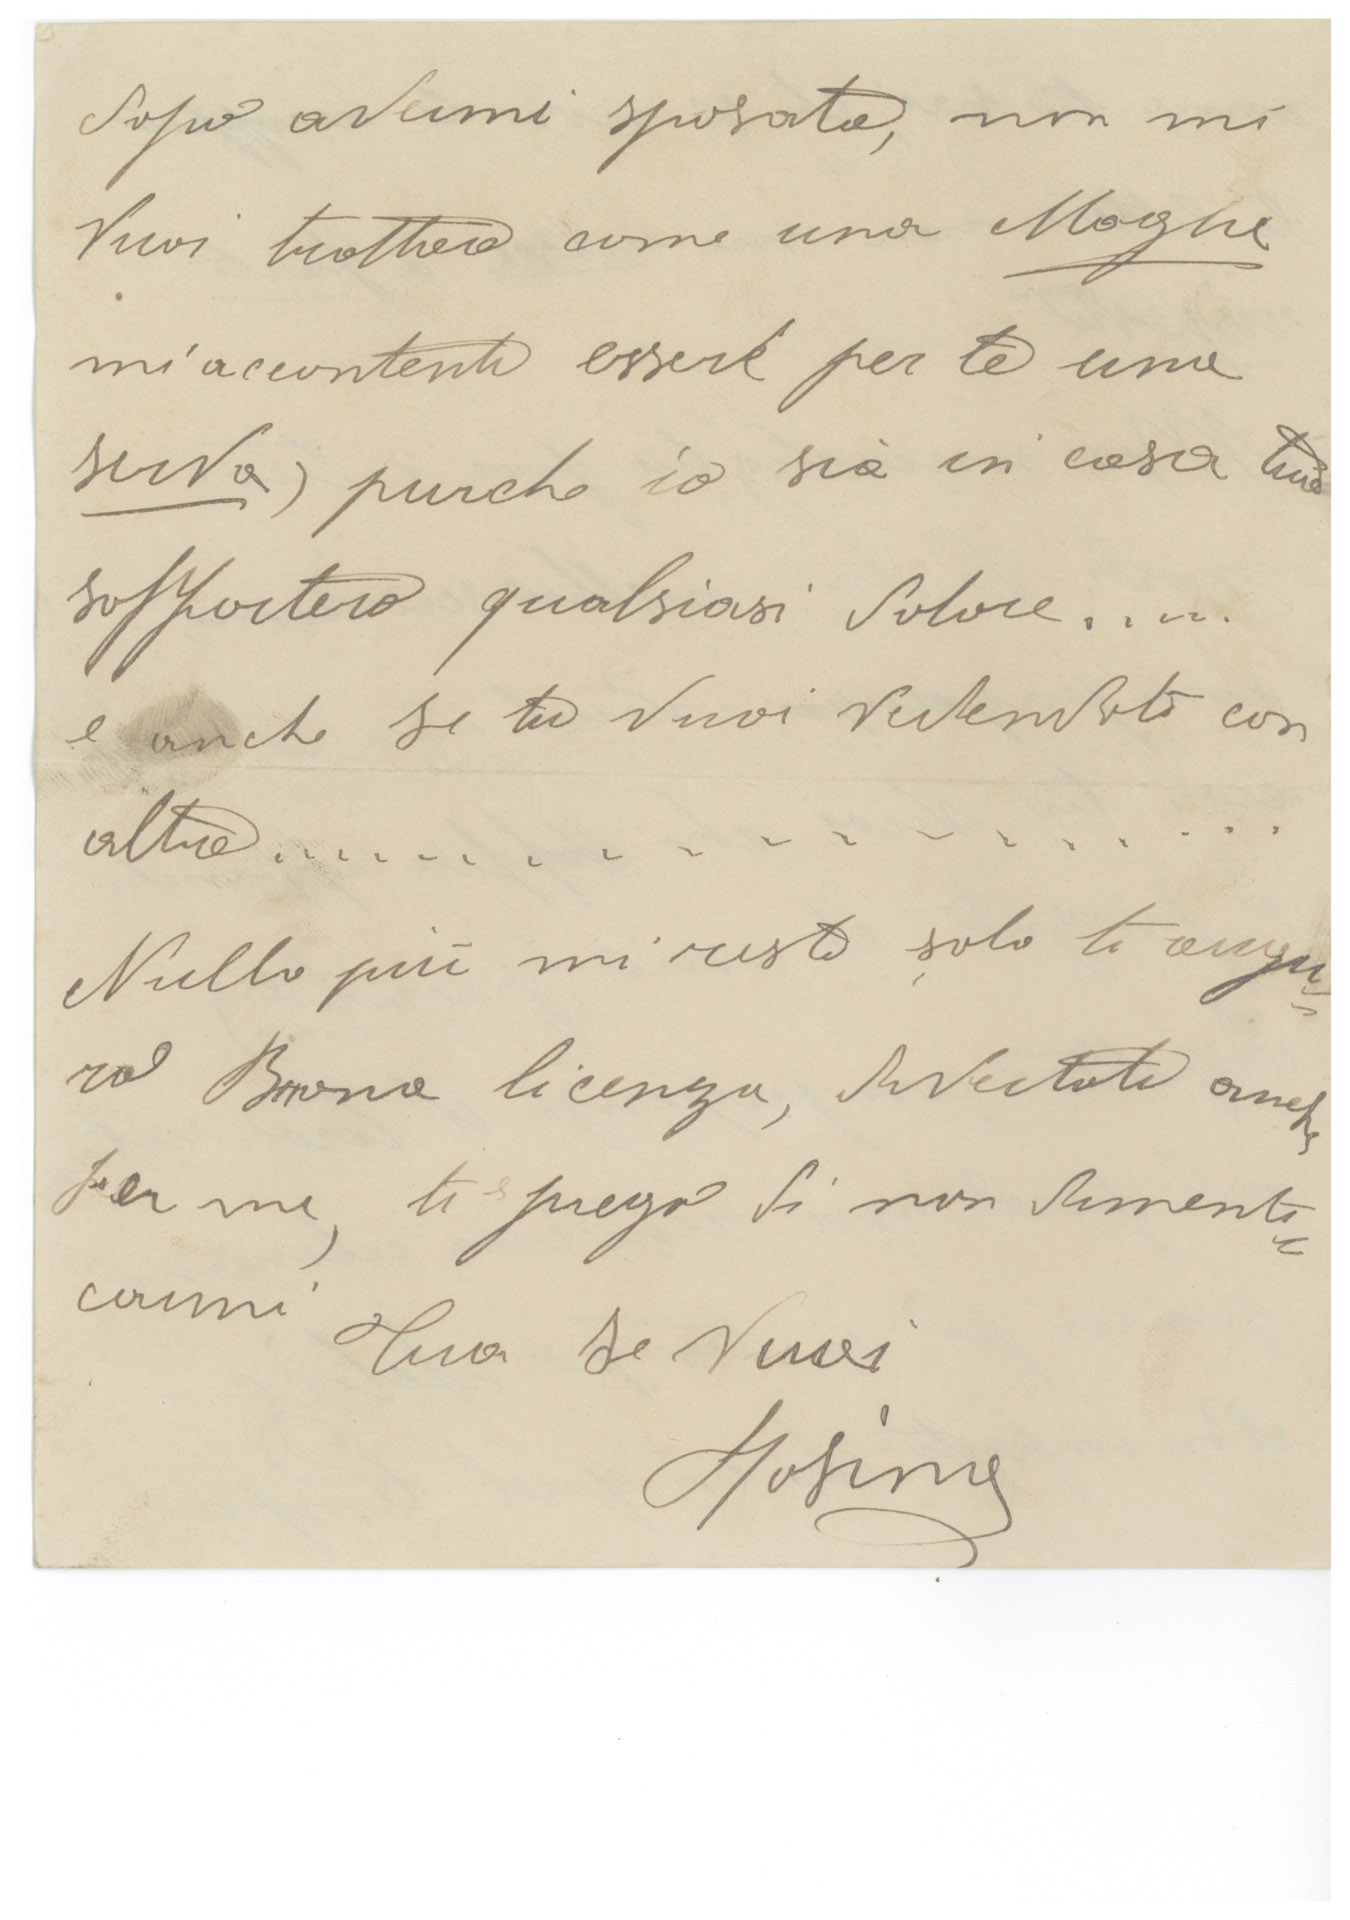 dopo avermi sposata, non mi
vuoi trattare come una Moglie
mi accontento essere per te una
serva, purche io sia in casa tua
soffortero qualsiasi dolore.....
e anche se tu vuoi vedendoti con
altre....................
Nulla più mi resta solo ti augu=
ro Buona licenza, divertiti anche
per me, ti prego di non dimenti=
carmi
Tua se vuoi